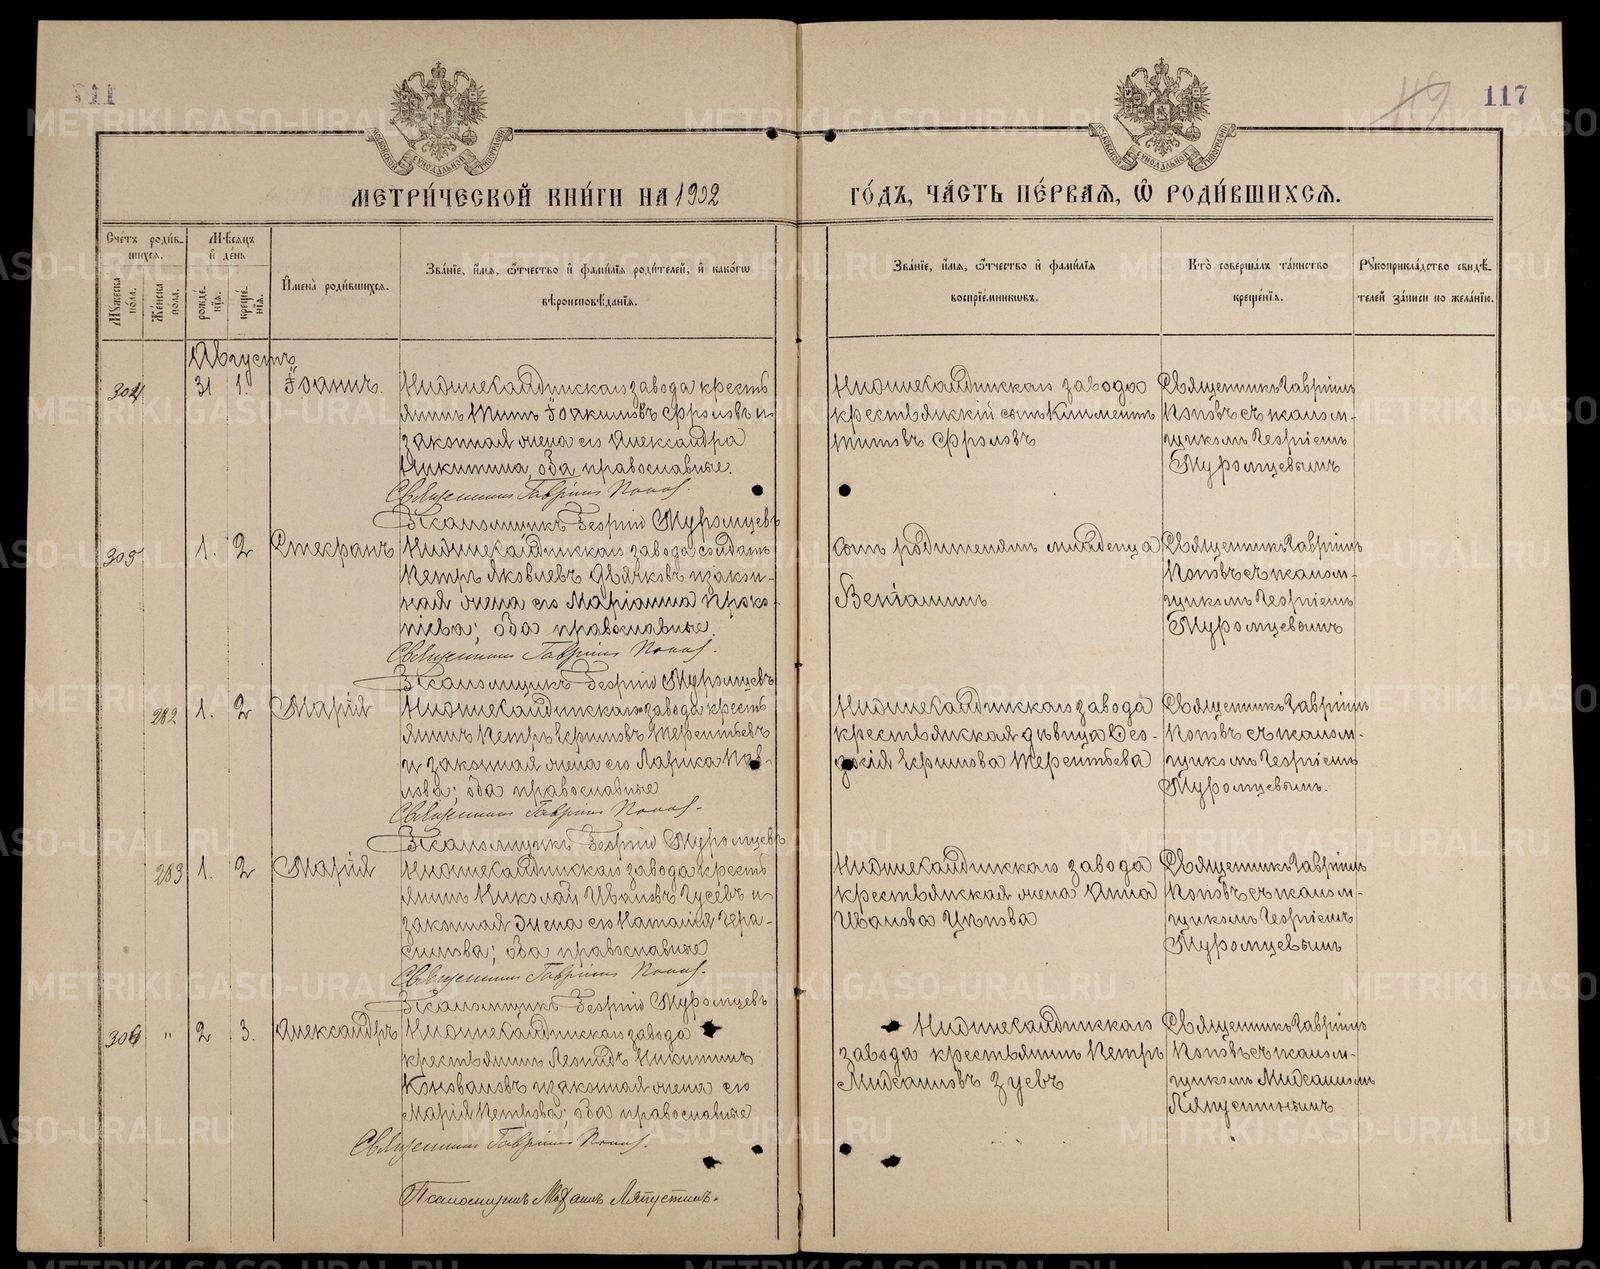 117
49
117
МЕТРИ́ЧЕСКОЙ КНИ́ГИ НА 1902 ГО́ДЪ, ЧА́СТЬ ПЕ́РВАѦ, Ѽ РОДИ́ВШИХСѦ.
Сче́тъ роди́в-шихсѧ.
Мꙋжеска по́ла.
Же́нска по́ла.
Мѣ́сѧцъ и҆ де́нь
рожде́-нїѧ.
креще́-нїѧ.
И҆мена̀ роди́вшихсѧ.
Зва́нїе, и҆́мѧ, ѻ҆́тчество и҆ фами́лїѧ роди́телей, и҆ како́гѡ
вѣроисповѣ́данїѧ.
Зва́нїе, и҆́мѧ, ѻ҆́тчество и҆ фами́лїѧ
воспрїе́мникѡвъ.
Кто̀ соверша́лъ та́инство
креще́нїѧ.
Рꙋкоприкла́дство свидѣ́-
телей за́писи по жела́нїю.
Августъ
304 31 1. Іоаннъ.
Нижнесалдинскаго завода кресть
янинъ Титъ Іоакимовъ Фроловъ и
законная жена его Александра
Никитина, оба православные.
Священникъ Гавріилъ Поповъ.
Псаломщикъ Георгій Муромцевъ
Нижнесалдинскаго завода
крестьянскій сынъ Климентъ
Титовъ Фроловъ
Священникъ Гавріилъ
Поповъ съ псалом-
щикомъ Георгіемъ
Муромцевымъ
305 1. 2 Стефанъ
Нижнесалдинскаго завода солдатъ
Петръ Яковлевъ Дьячковъ и закон-
ная жена его Маріанна Проко-
піева; оба православные.
Священникъ Гавріилъ Поповъ.
Псаломщикъ Георгій Муромцевъ
младенца
Веніаминъ
Священникъ Гавріилъ
Поповъ съ псалом-
щикомъ Георгіемъ
Муромцевымъ
282 1. 2 Марія
Нижнесалдинскаго завода кресть
янинъ Петръ Ефимовъ Терентьевъ
и законная жена его Лариса Пав-
лова; оба православные
Священникъ Гавріилъ Поповъ.
Псаломщикъ Георгій Муромцевъ
Нижнесалдинскаго завода
крестьянская дѣвица Ѳео-
досія Ефимова Терентьева
Священникъ Гавріилъ
Поповъ съ псалом-
щикомъ Георгіемъ
Муромцевымъ.
283 1. 2 Марія
Нижнесалдинскаго завода кресть
янинъ Николай Ивановъ Гусевъ и
законная жена его Наталія Гера-
симова; оба православные
Священникъ Гавріилъ Поповъ.
Псаломщикъ Георгій Муромцевъ
Нижнесалдинскаго завода
крестьянская жена Анна
Иванова Цѣпова
Священникъ Гавріилъ
Поповъ съ псалом-
щикомъ Георгіемъ
Муромцевымъ
306 " 2 3. Александръ
Нижнесалдинскаго завода
крестьянинъ Леонидъ Никитинъ
Коноваловъ и законная жена его
Марія Петрова; оба православные
Священникъ Гавріилъ Поповъ.
Псаломщикъ Михаилъ Ляпустинъ.
Нижнесалдинскаго
завода крестьянинъ Петръ
Михаиловъ Зуевъ
Священникъ Гавріилъ
Поповъ съ псалом-
щикомъ Михаиломъ
Ляпустинымъ
METRIKI.GASO-URAL.RU